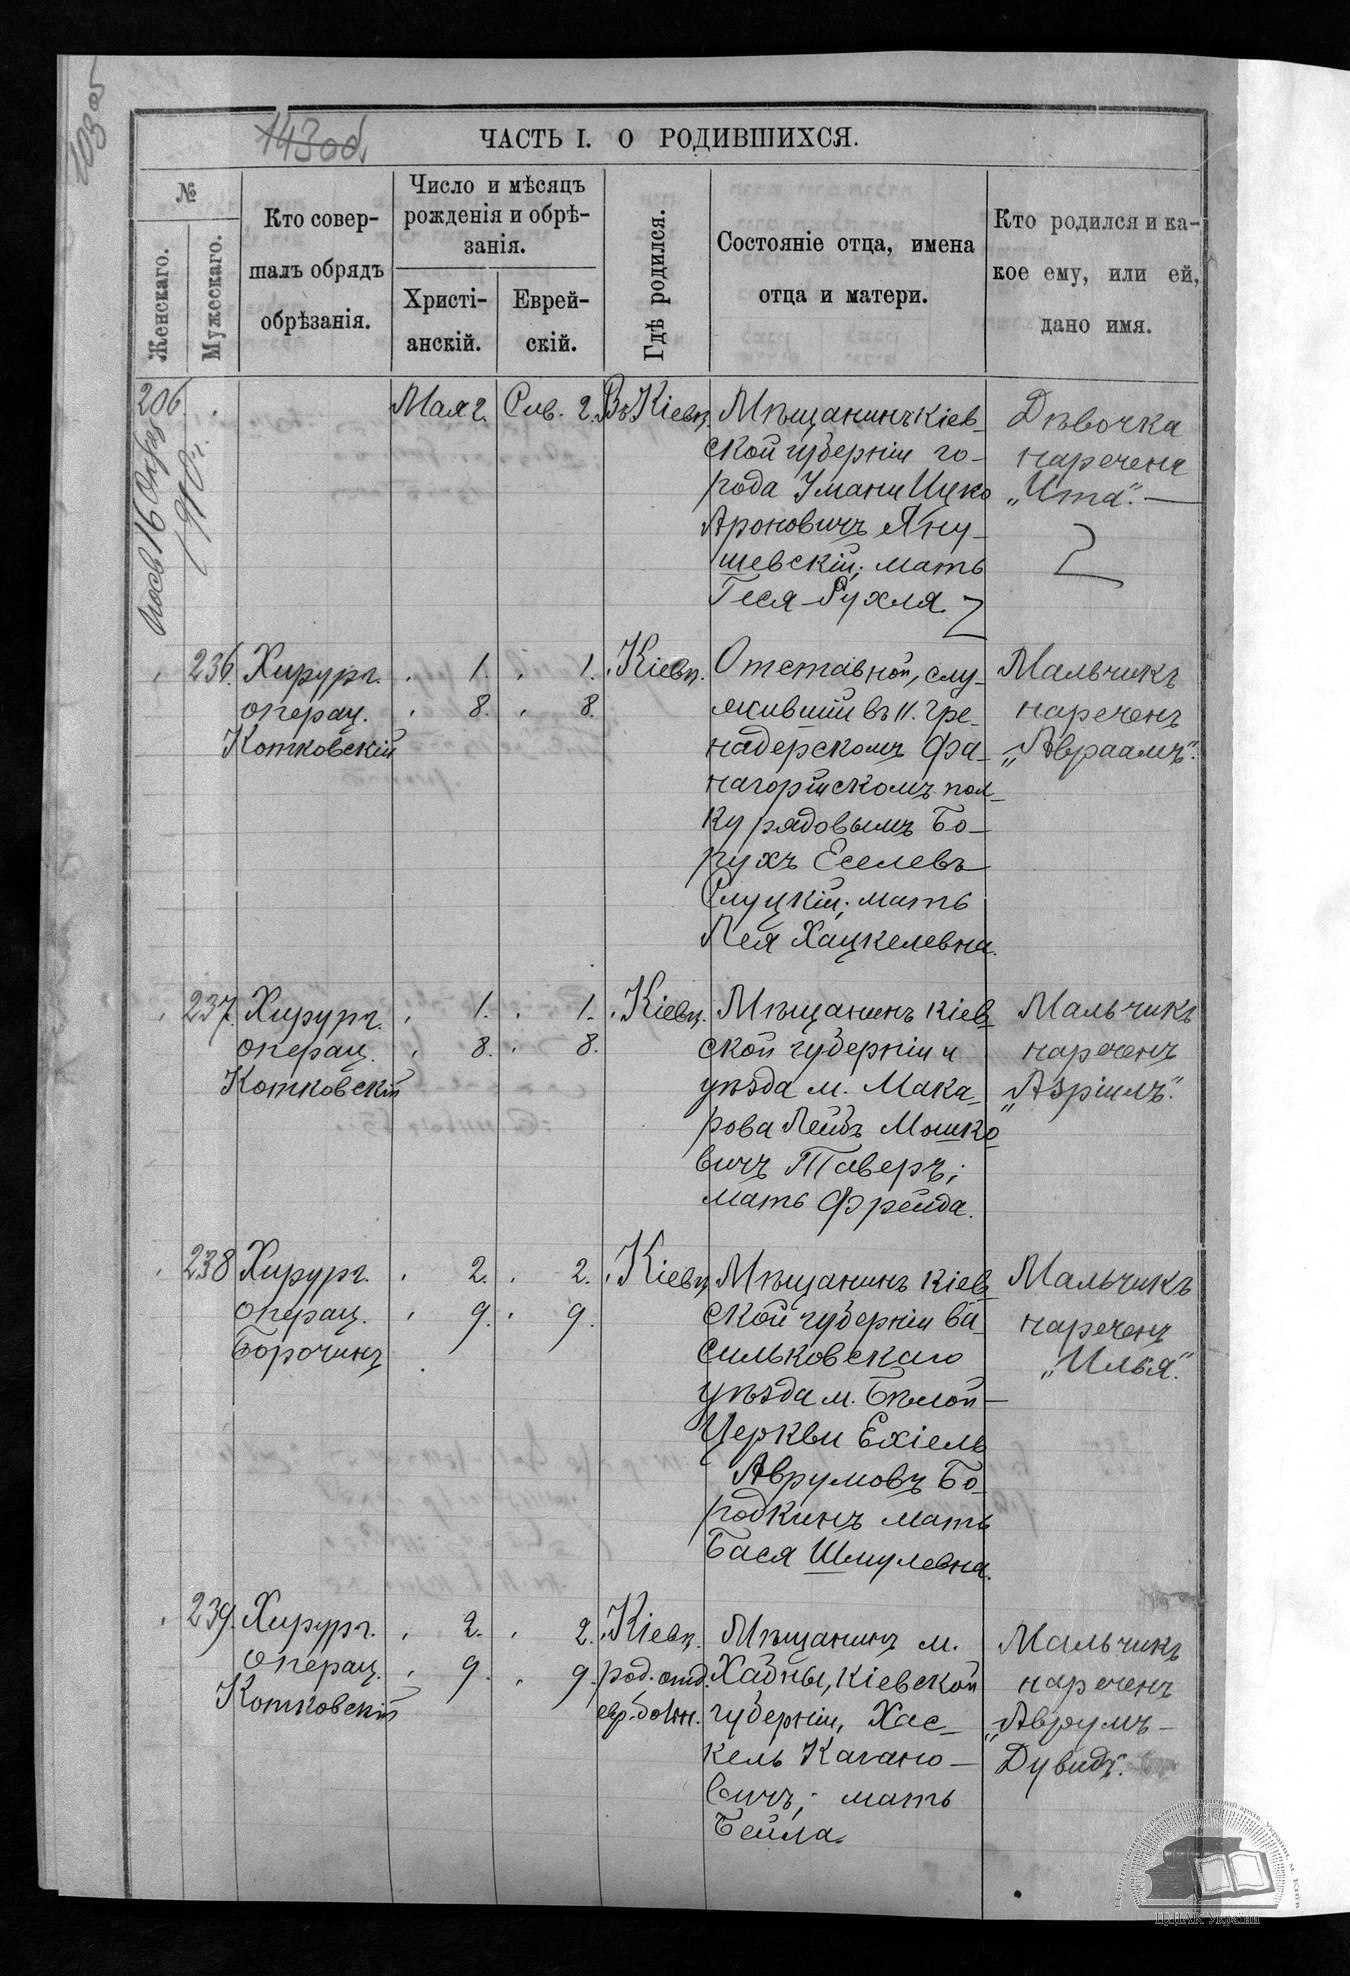 143 об.
ЧАСТЬ I. О РОДИВШИХСЯ.
№
Женскаго.
Мужескаго.
Кто совер-
шалъ обрядъ
обрѣзанія.
Число и мѣсяцъ
рожденія и обрѣ-
занія.
Христі-
анскій.
Еврей-
скій.
Гдѣ родился.
Состояніе отца, имена
отца и матери.
Кто родился и ка-
кое ему, или ей,
дано имя.
206.
1910 г.
Мая 2.
Сив. 2.
Въ Кіевѣ.
Мѣщанинъ Кіев-
ской губерніи го-
рода Умани Ицко
Ароновичъ Яну-
шевскій; мать
Геся-Рухля
Дѣвочка
наречена
„Ита“.—
236.
Хирург.
операц.
Котковскій
1. 1.
8. 8.
Кіевѣ.
Отставной, слу-
жившій въ 11. Гре-
надерскомъ Фа-
нагорійскомъ пол-
ку рядовымъ Бо-
рухъ Еселевъ
Слуцкій; мать
Лея Хацкелевна.
Мальчикъ
нареченъ
„Авраамъ“.
237.
Хирург.
операц.
Котковскій
1. 1.
8. 8.
Кіевѣ.
Мѣщанинъ Кіев-
ской губерніи и
уѣзда м. Мака-
рова Лейбъ Мошко-
вичъ Таверъ;
мать Фрейда.
Мальчикъ
нареченъ
„Азріилъ“.
238
Хирург.
операц.
Борочинъ
2. 2.
9. 9.
Кіевѣ
Мѣщанинъ Кіев-
ской губерніи Ва-
сильковскаго
уѣзда м. Бѣлой-
Церкви Ехіель
Аврумовъ Бо-
родкинъ мать
Бася Шмулевна.
Мальчикъ
нареченъ
„Илья“.
239.
Хирург.
операц.
Котковскій
2. 2.
9. 9.
Кіевѣ.
род. отд.
евр. больн.
Мѣщанинъ м.
Хабны, Кіевской
губерніи, Хас-
кель Кагано-
вичъ; мать
Бейла.
Мальчикъ
нареченъ
„Аврумъ-
Дувидъ“.
ЦДІАК України